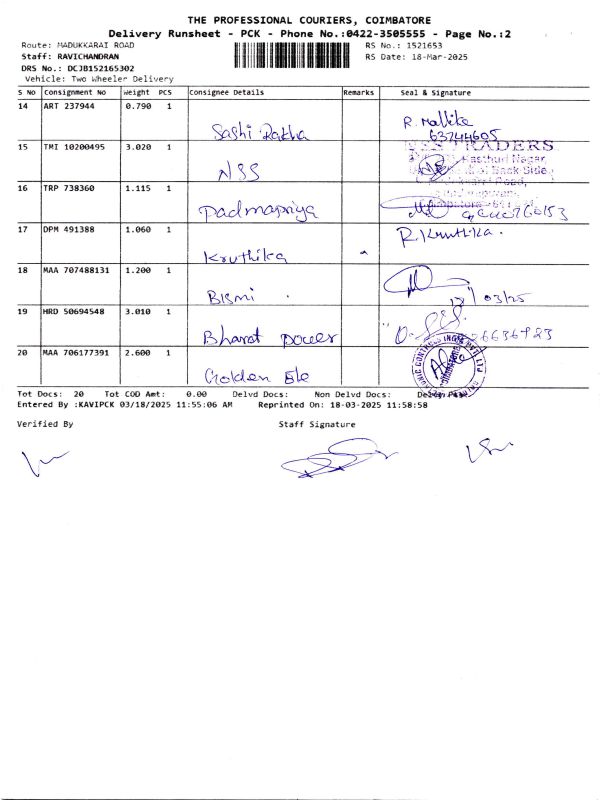 THE PROFESSIONAL COURIERS, COIMBATORE
Delivery Runsheet - PCK - Phone No.:0422-3505555 - Page No.:2
Route: MADUKKARAI ROAD RS No.: 1521653
Staff: RAVICHANDRAN RS Date: 18-Mar-2025
DRS No.: DCJB152165302
Vehicle: Two Wheeler Delivery
S No Consignment No Weight PCS Consignee Details Remarks Seal & Signature
14 ART 237944 0.790 1
Sashi Rekha R. Mallika
63744605
15 TMI 10200495 3.020 1 TRADERS
NSS Kasthuri Nagar,
Back Side
Road,
16 TRP 738360 1.115 1
Padmapriya
17 DPM 491388 1.060 1 R. Kruthika.
Kruthika
18 MAA 707488131 1.200 1
Bismi /03/25
19 HRD 50694548 3.010 1
Bharat power
20 MAA 706177391 2.600 1
Golden Ele
Tot Docs: 20 Tot COD Amt: 0.00 Delvd Docs: Non Delvd Docs:
Entered By :KAVIPCK 03/18/2025 11:55:06 AM Reprinted On: 18-03-2025 11:58:58
Verified By Staff Signature